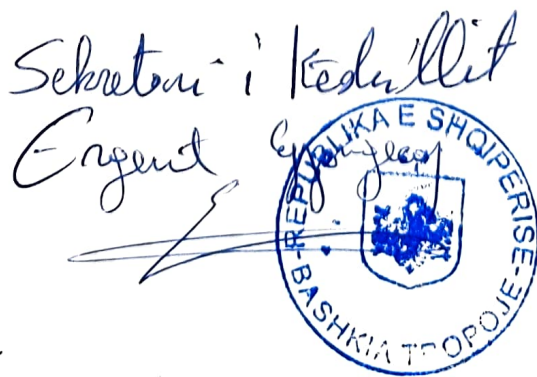 Sekretari i Këshillit
Ergent
REPUBLIKA E SHQIPERISE
BASHKIA TROPOJE